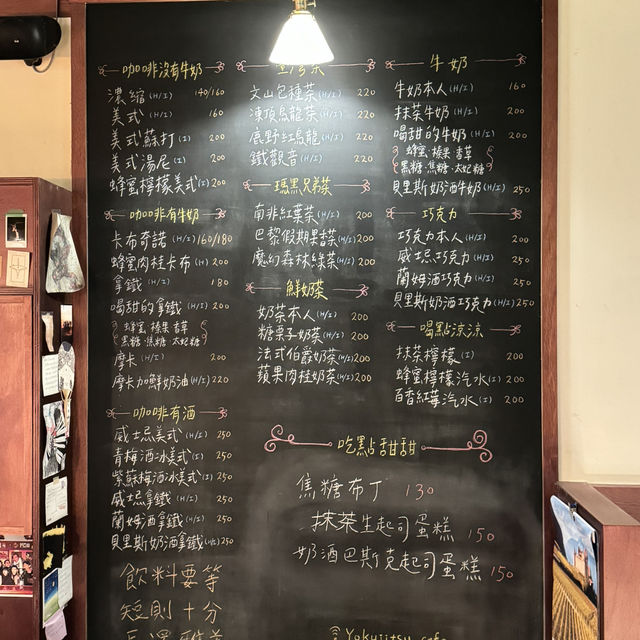 咖啡沒有牛奶
濃縮(H/I) 140/160
美式(H/I) 160
美式蘇打(I) 200
美式湯尼(I) 200
蜂蜜檸檬美式(I) 200
咖啡有牛奶
卡布奇諾(H/I) 160/180
蜂蜜肉桂卡布(H) 200
拿鐵(H/I) 180
喝甜的拿鐵(H/I) 200
蜂蜜.榛果.香草
黑糖.焦糖.太妃糖
摩卡(H/I) 200
摩卡加鮮奶油(H/I) 220
咖啡有酒
威士忌美式(H/I) 250
青梅酒冰美式(I) 250
紫蘇梅酒冰美式(I) 250
威士忌拿鐵(H/I) 250
蘭姆酒拿鐵(H/I) 250
貝里斯奶酒拿鐵(H/I) 250
飲料要等
短則十分
文山包種茶(H/I) 220
凍頂烏龍茶(H/I) 220
鹿野紅烏龍(H/I) 220
鐵觀音(H/I) 220
瑪黑兄弟茶
南非紅葉茶(H/I) 200
巴黎假期果香茶(H/I) 200
魔幻森林綠茶(H/I) 200
鮮奶茶
奶茶本人(H/I) 200
糖栗子奶茶(H/I) 200
法式伯爵奶茶(H/I) 200
蘋果肉桂奶茶(H/I) 200
牛奶
牛奶本人(H/I) 160
抹茶牛奶(H/I) 200
喝甜的牛奶(H/I) 200
蜂蜜.榛果.香草
黑糖.焦糖.太妃糖
貝里斯奶酒牛奶(H/I) 250
巧克力
巧克力本人(H/I) 200
威士忌巧克力(H/I) 250
蘭姆酒巧克力(H/I) 250
貝里斯奶酒巧克力(H/I) 250
喝點涼涼
抹茶檸檬(I) 200
蜂蜜檸檬汽水(I) 200
百香紅莓汽水(I) 200
吃點甜甜
焦糖布丁 130
抹茶生起司蛋糕 150
奶酒巴斯克起司蛋糕 150